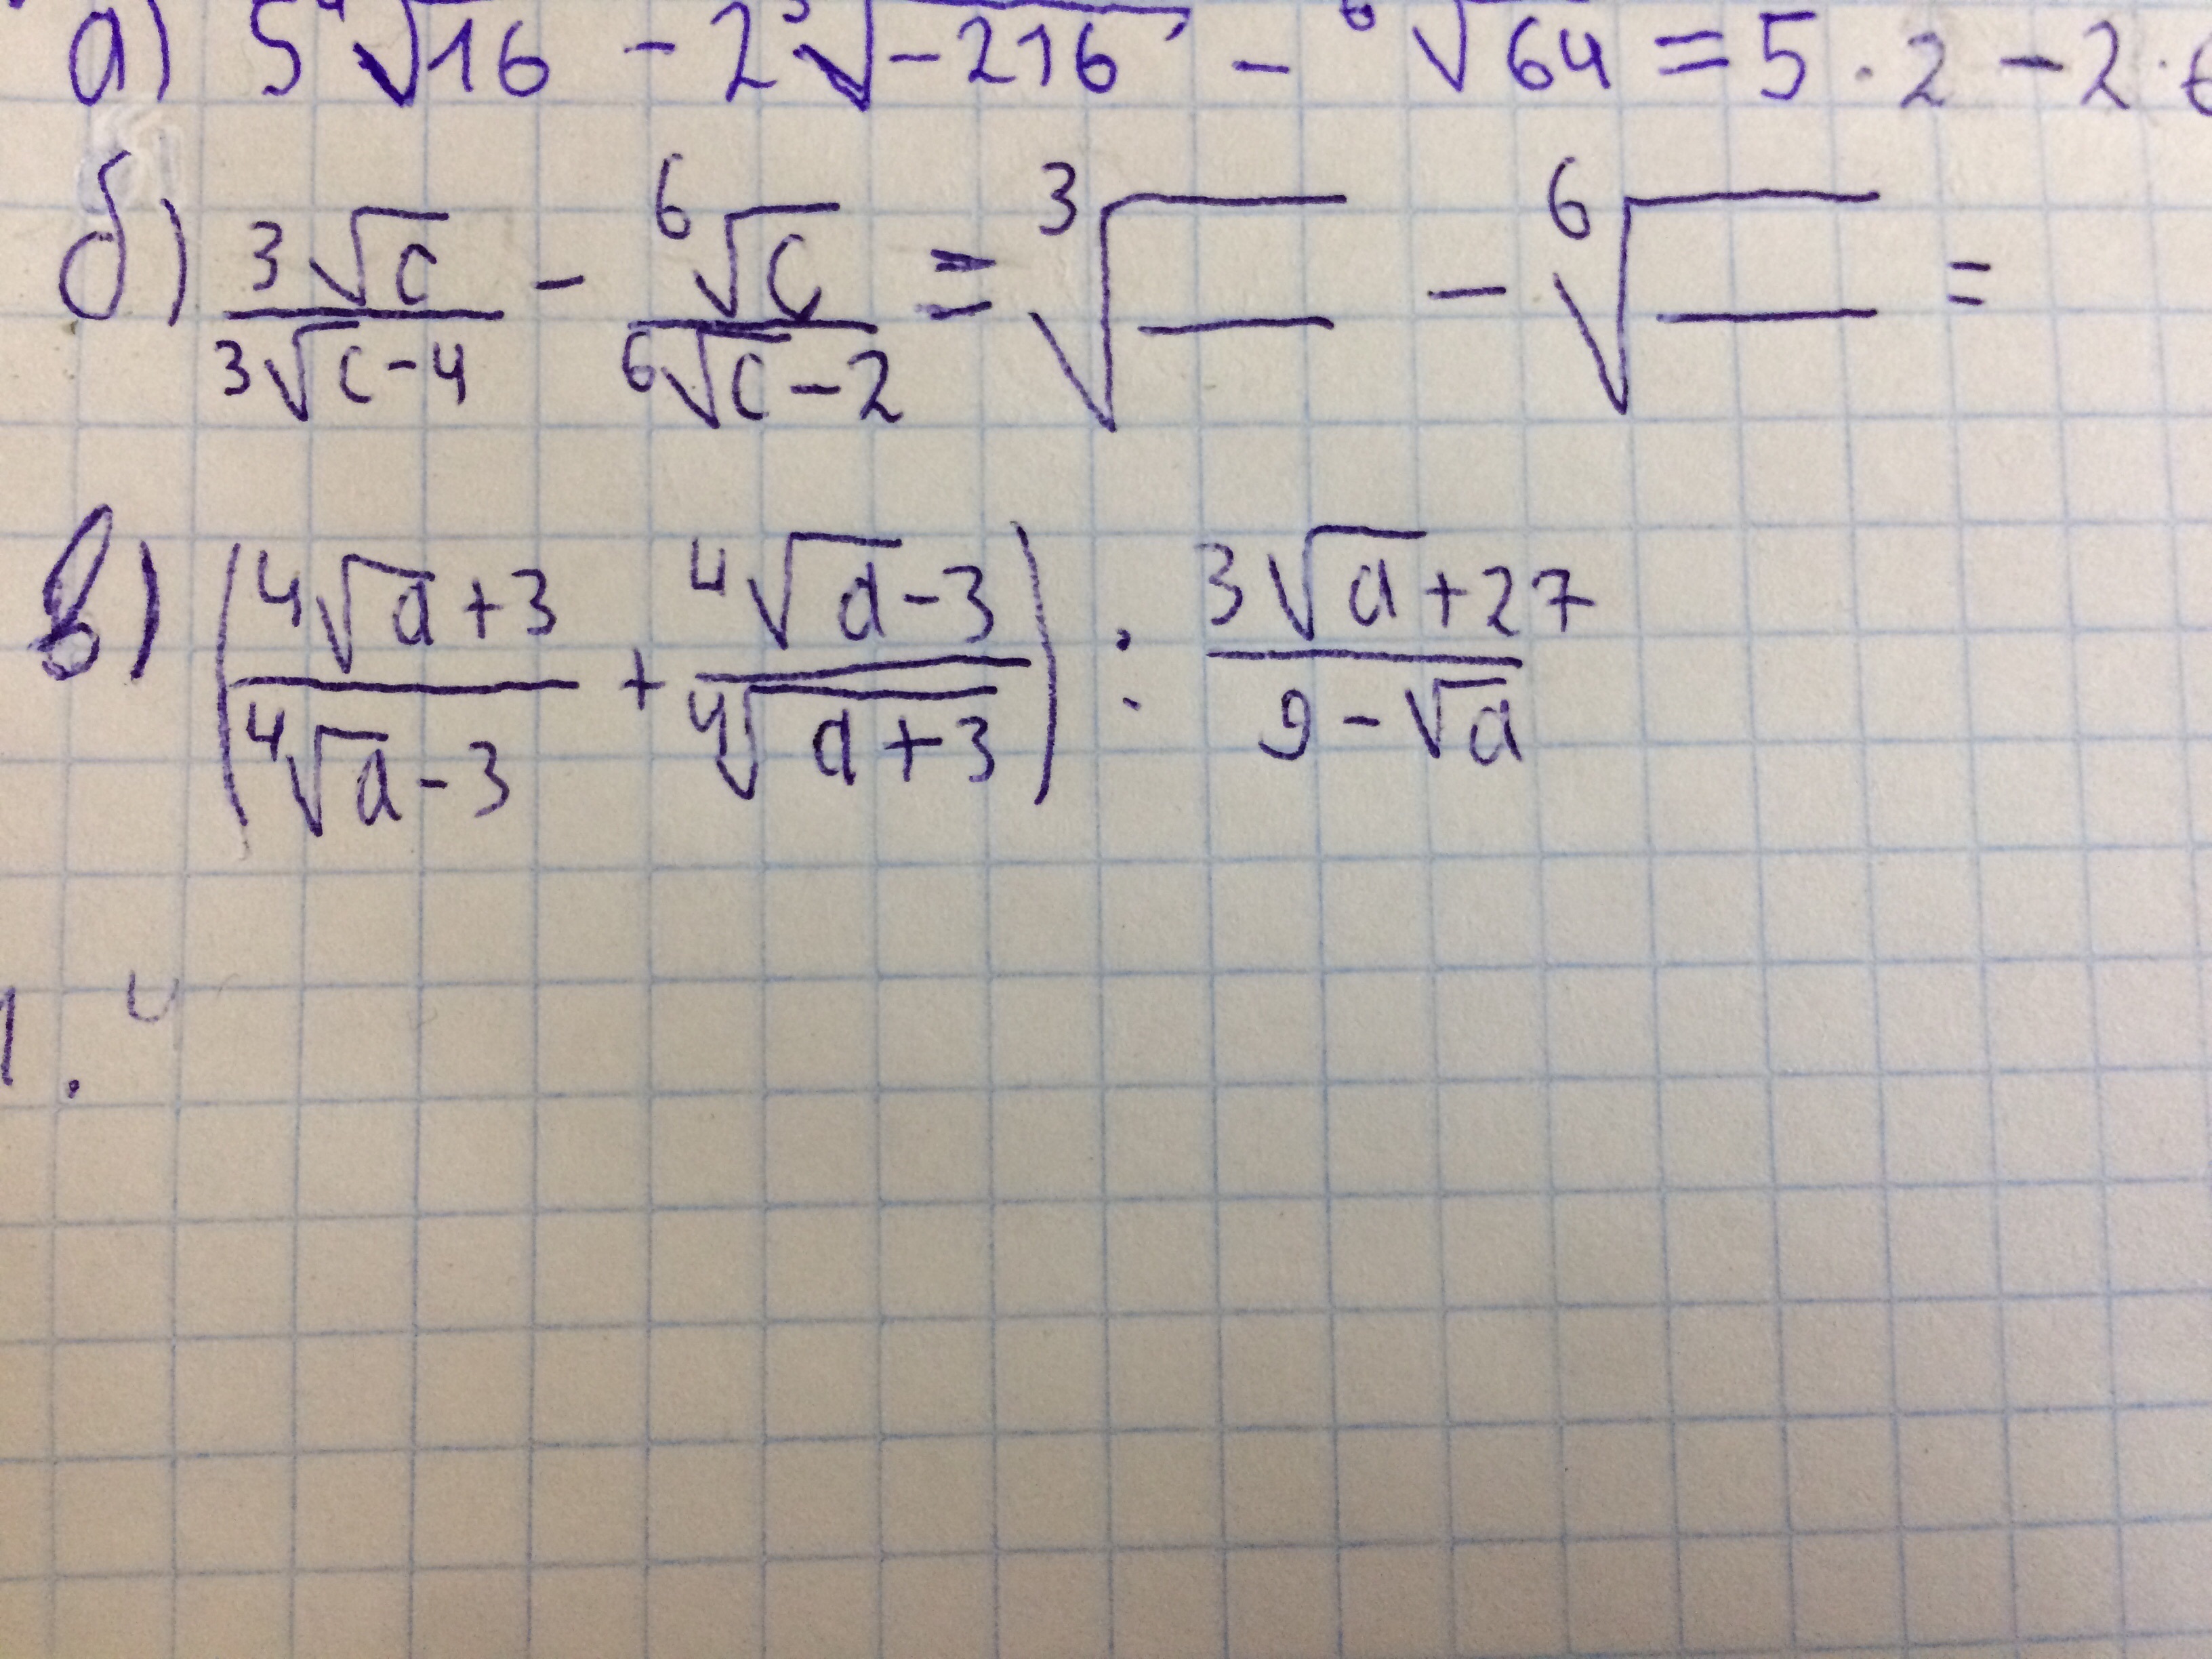 а) 5⁴√16 - 2³√-216 - ⁶√64 = 5 · 2 - 2 ·
б) ³√c / ³√c-4 - ⁶√c / ⁶√c-2 = ³√— - ⁶√— =
в) (⁴√a+3 / ⁴√a-3 + ⁴√a-3 / ⁴√a+3) : 3√a+27 / 9-√a
1. 4